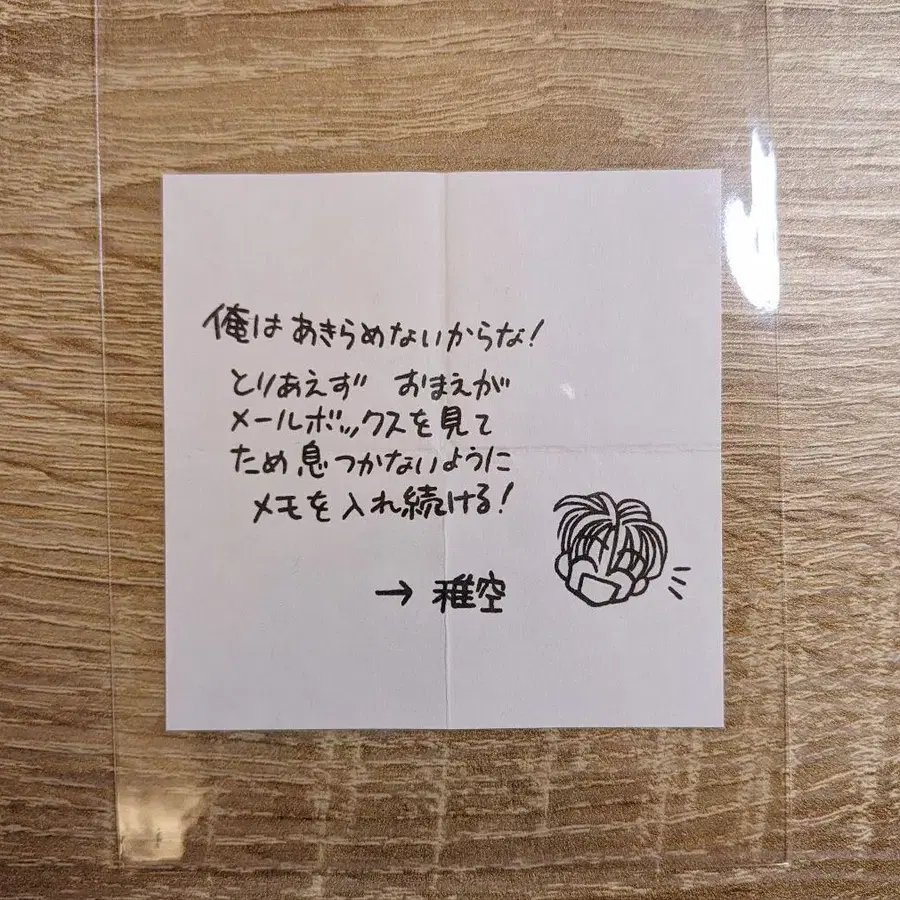 俺はあきらめないからな!
とりあえず おまえが
メールボックスを見て
ため息つかないように
メモを入れ続ける!
→ 稚空